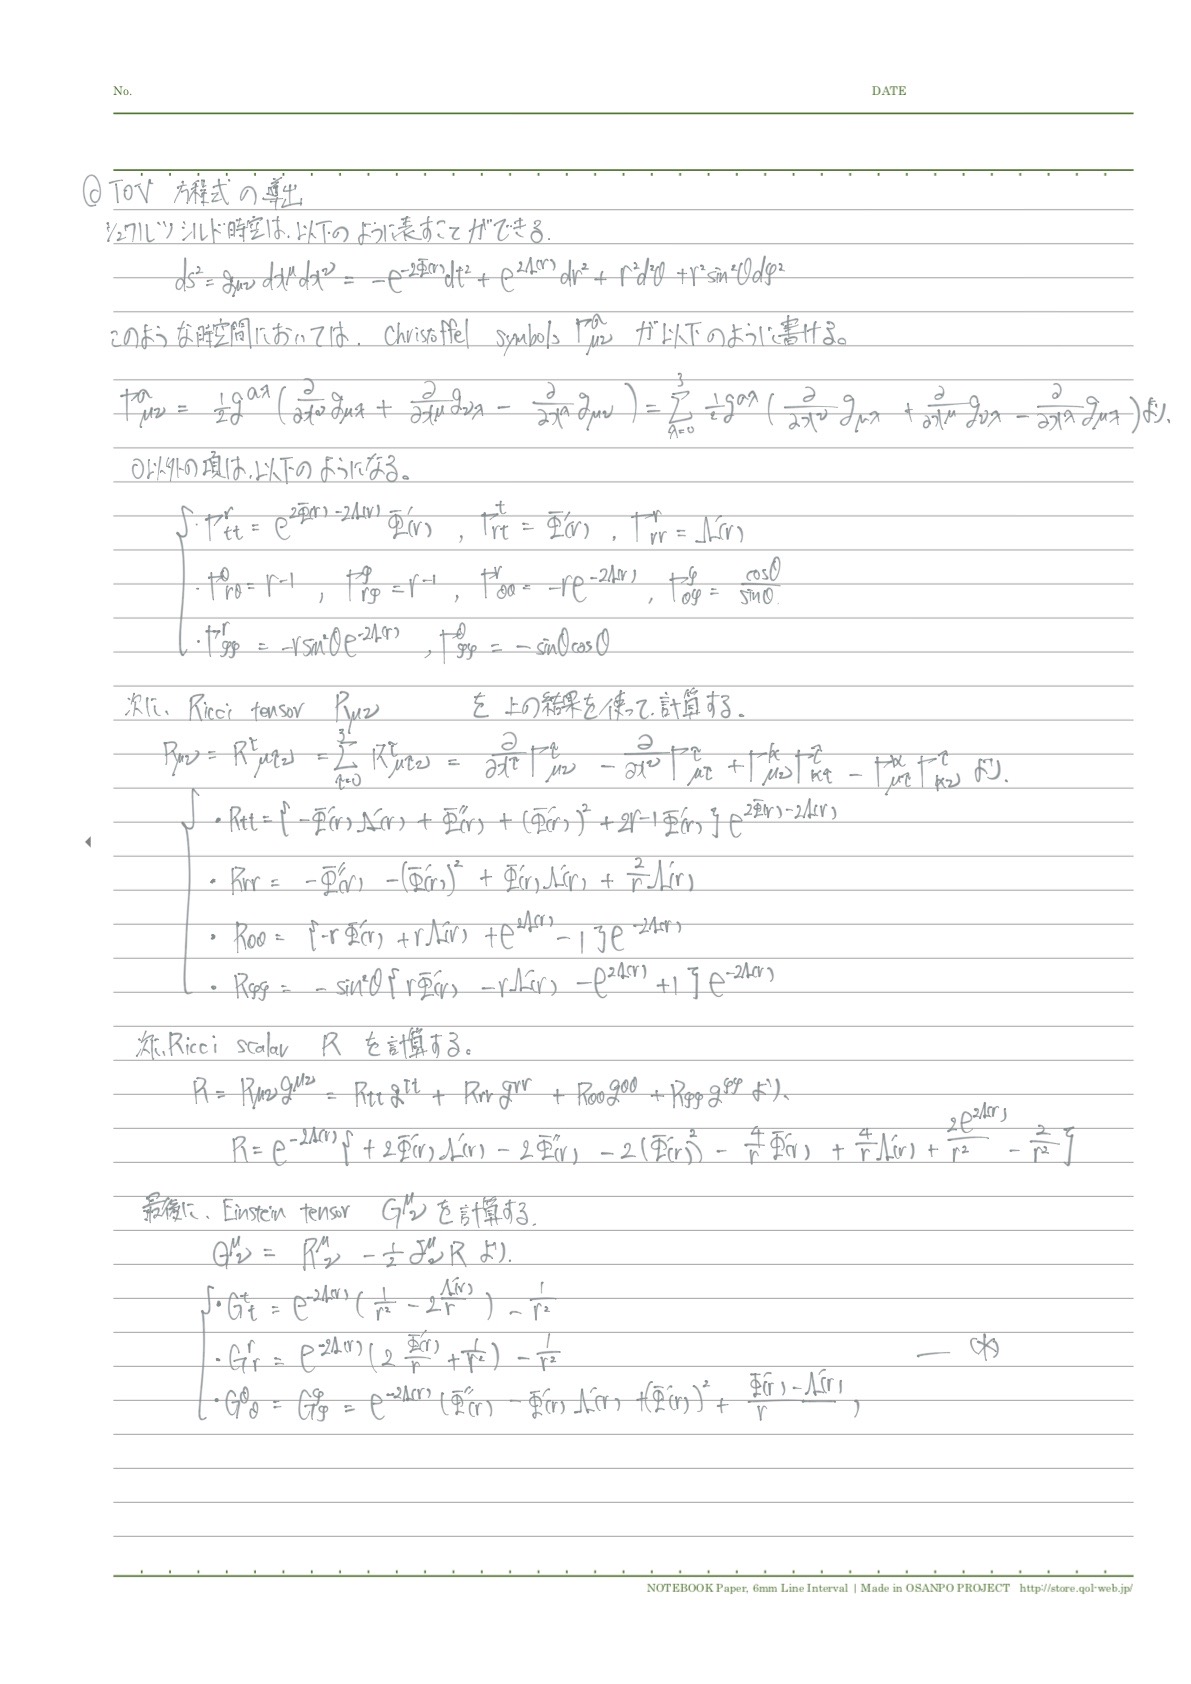 No. DATE
◎ TOV 方程式の導出
シュワルツシルド時空は、以下のように表すことができる.
ds² = g_μν dx^μ dx^ν = -e^{-2Φ(r)}dt² + e^{2Λ(r)}dr² + r²d²θ + r²sin²θdφ²
このような時空間においては、Christoffel symbols Γ^α_μν が以下のように書ける。
Γ^α_μν = 1/2 g^{αλ} ( ∂/∂x^ν g_μλ + ∂/∂x^μ g_νλ - ∂/∂x^λ g_μν ) = Σ_{λ=0}^{3} 1/2 g^{αλ} ( ∂/∂x^ν g_μλ + ∂/∂x^μ g_νλ - ∂/∂x^λ g_μλ ) より、
0以外の項は、以下のようになる。
・Γ^r_tt = e^{2Φ(r)-2Λ(r)} Φ'(r) , Γ^t_rt = Φ'(r) , Γ^r_rr = Λ'(r)
・Γ^θ_rθ = r^{-1} , Γ^φ_rφ = r^{-1} , Γ^r_θθ = -re^{-2Λ(r)} , Γ^φ_θφ = cosθ/sinθ
・Γ^r_φφ = -rsin²θe^{-2Λ(r)} , Γ^θ_φφ = -sinθcosθ
次に、Ricci tensor R_μν を上の結果を使って、計算する。
R_μν = R^τ_μτν = Σ_{τ=0}^{3} R^τ_μτν = ∂/∂x^τ Γ^τ_μν - ∂/∂x^ν Γ^τ_μτ + Γ^κ_μν Γ^τ_κτ - Γ^κ_μτ Γ^τ_κν より.
・R_tt = { -Φ'(r)Λ'(r) + Φ''(r) + (Φ'(r))² + 2r^{-1}Φ'(r) } e^{2Φ(r)-2Λ(r)}
・R_rr = -Φ''(r) - (Φ'(r))² + Φ'(r)Λ'(r) + 2/r Λ'(r)
・R_θθ = { -rΦ'(r) + rΛ'(r) + e^{2Λ(r)} - 1 } e^{-2Λ(r)}
・R_φφ = -sin²θ { rΦ'(r) - rΛ'(r) - e^{2Λ(r)} + 1 } e^{-2Λ(r)}
次に、Ricci scalar R を計算する。
R = R_μν g^μν = R_tt g^tt + R_rr g^rr + R_θθ g^θθ + R_φφ g^φφ より、
R = e^{-2Λ(r)} { + 2Φ'(r)Λ'(r) - 2Φ''(r) - 2(Φ'(r))² - 4/r Φ'(r) + 4/r Λ'(r) + 2e^{2Λ(r)}/r² - 2/r² }
最後に、Einstein tensor G^μ_ν を計算する.
G^μ_ν = R^μ_ν - 1/2 δ^μ_ν R より.
・G^t_t = e^{-2Λ(r)} ( 1/r² - 2 Λ'(r)/r ) - 1/r²
・G^r_r = e^{-2Λ(r)} ( 2 Φ'(r)/r + 1/r² ) - 1/r² — (*)
・G^θ_θ = G^φ_φ = e^{-2Λ(r)} ( Φ''(r) - Φ'(r)Λ'(r) + (Φ'(r))² + Φ'(r)-Λ'(r)/r )
NOTEBOOK Paper, 6mm Line Interval | Made in OSANPO PROJECT http://store.qol-web.jp/